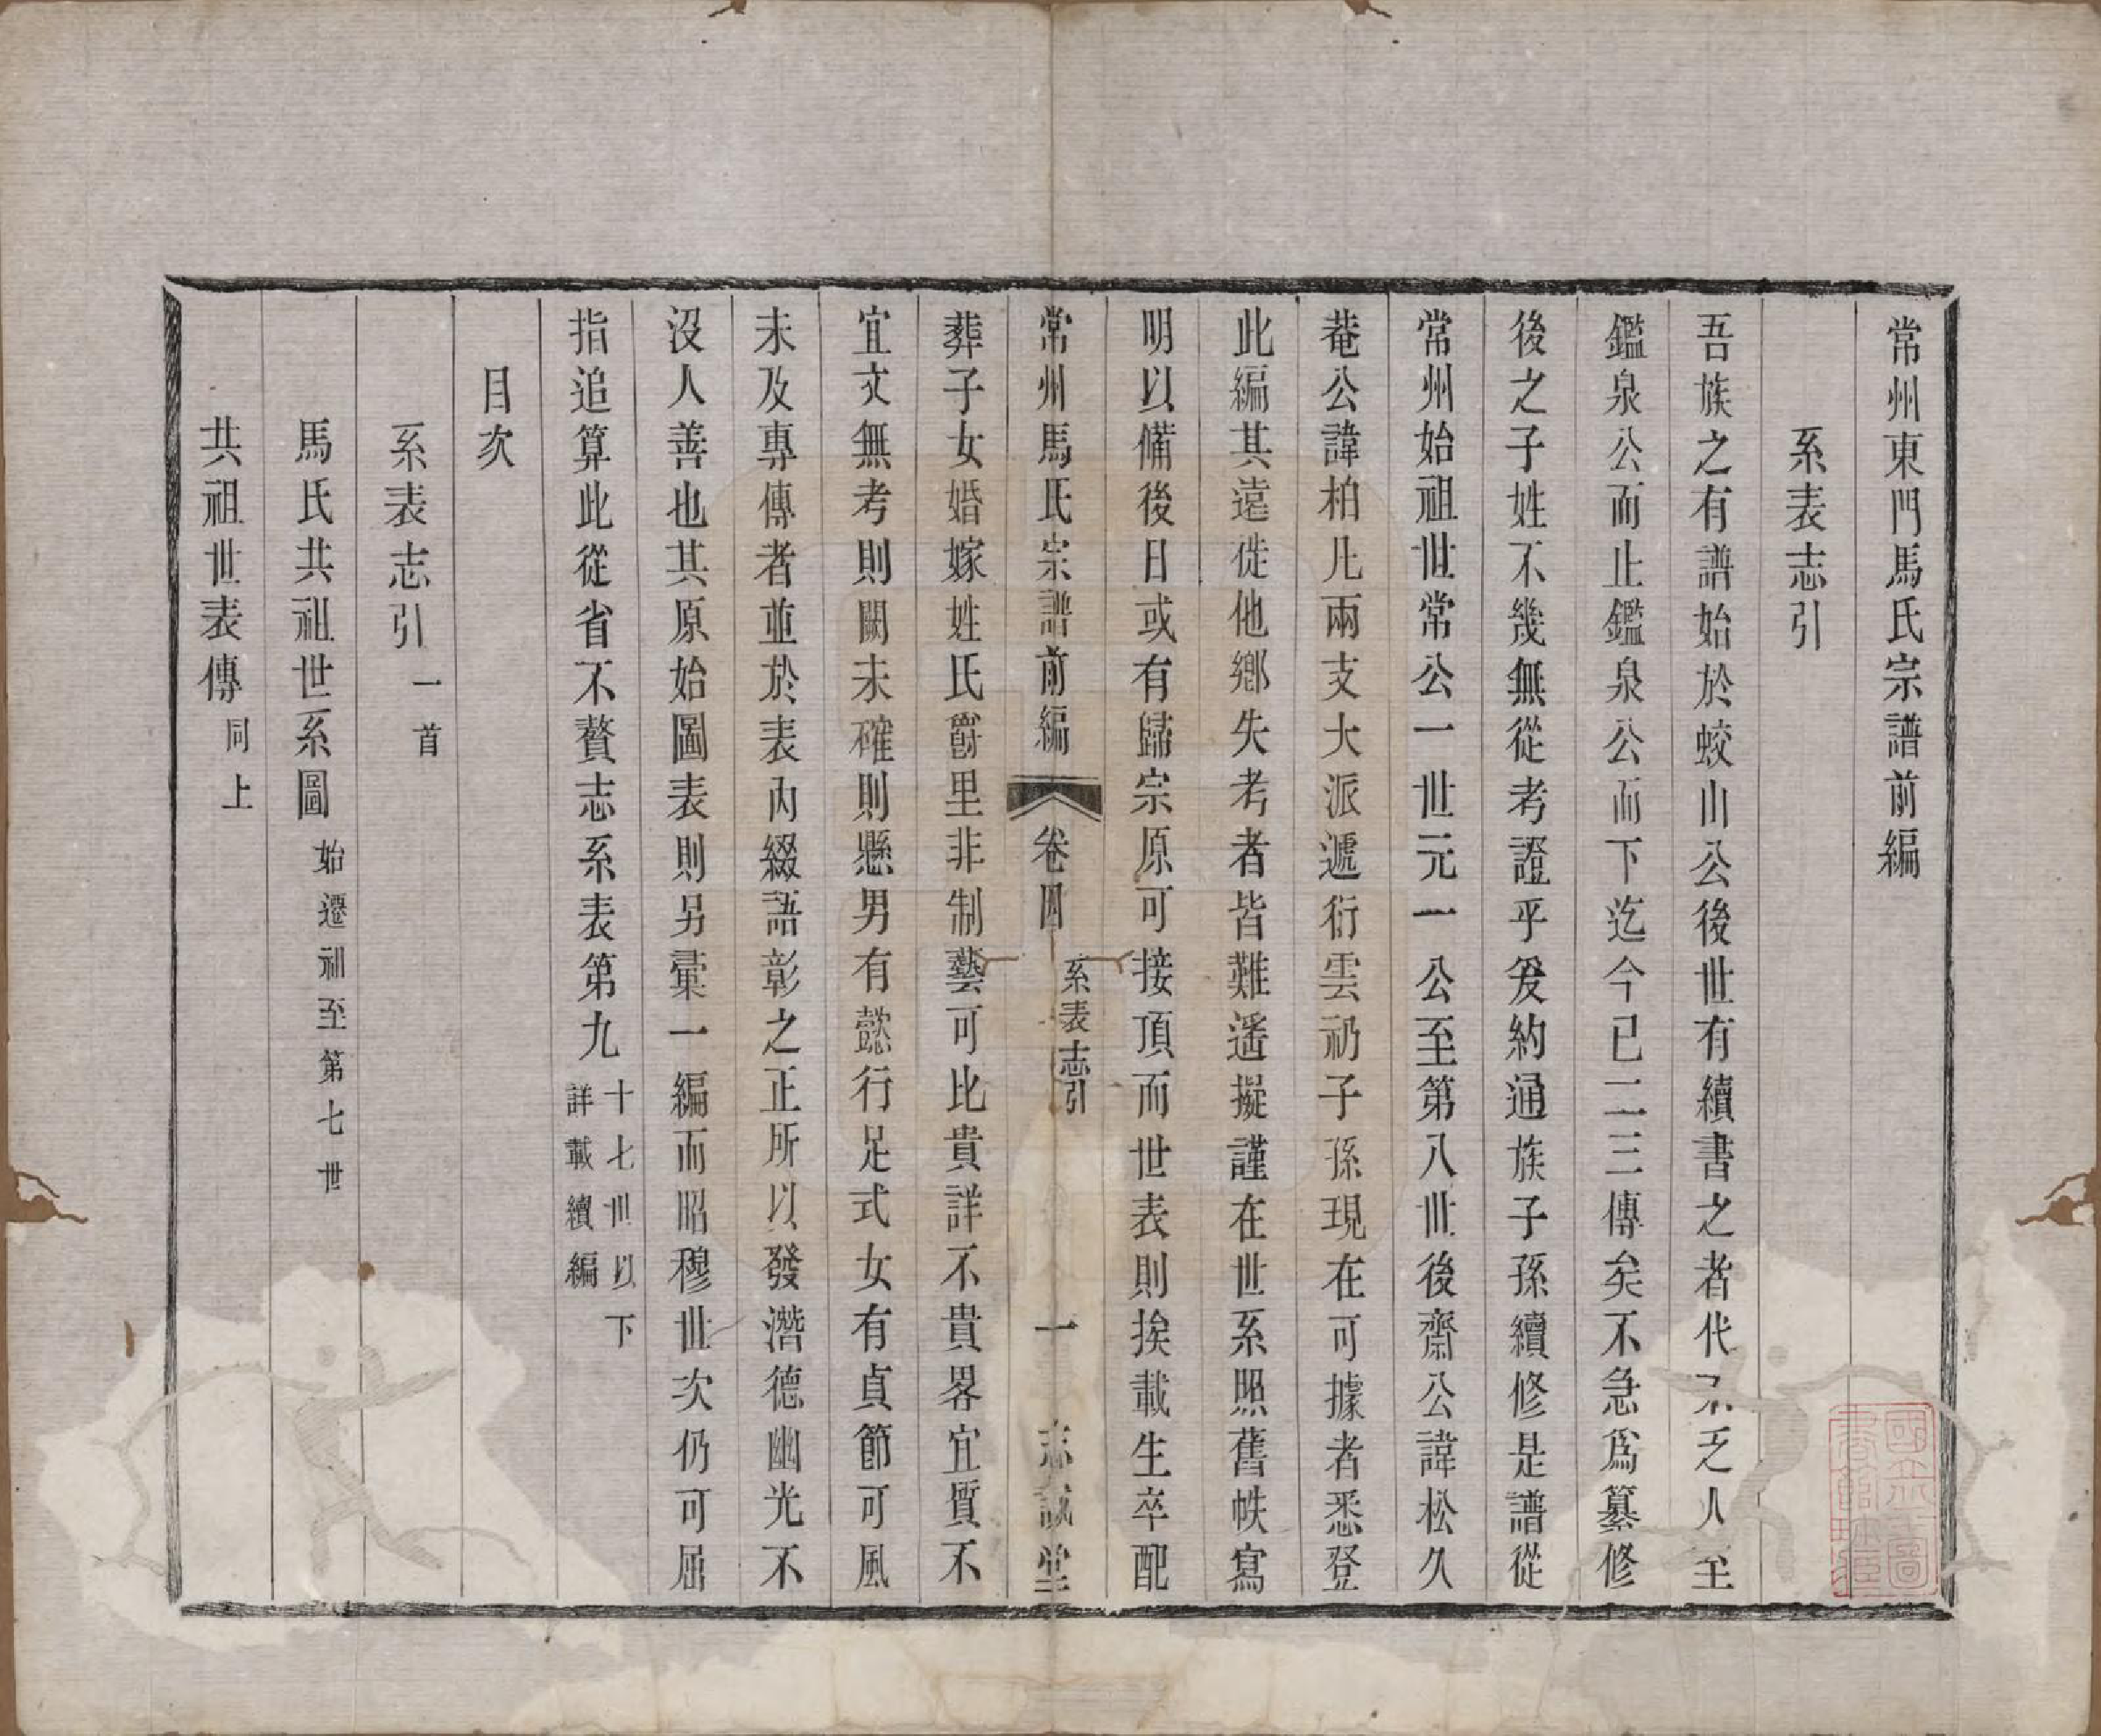 常州東門馬氏宗譜前編
系表志引
吾族之有譜始於蛟山公後世有續書之者代不乏人至
鑑泉公而止鑑泉公而下迄今已二三傳矣不急爲纂修
後之子姓不幾無從考證乎爰約通族子孫續修是譜從
常州始祖世常公一世元一公至第八世後齋公諱松久
菴公諱柏凡兩支大派遞衍雲礽子孫現在可據者悉登
此編其遠徙他鄉失考者皆難遙擬謹在世系照舊帙寫
明以備後日或有歸宗原可接頂而世表則挨載生卒配
常州馬氏宗譜前編 卷四 系表志引 一 志誠堂
葬子女婚嫁姓氏爵里非制藝可比貴詳不貴畧宜質不
宜文無考則闕未確則懸男有懿行足式女有貞節可風
未及專傳者並於表內綴語彰之正所以發潛德幽光不
沒人善也其原始圖表則另彙一編而昭穆世次仍可屈
指追算此從省不贅志系表第九 十七世以下詳載續編
目次
系表志引 一首
馬氏共祖世系圖 始遷祖至第七世
共祖世表傳 同上